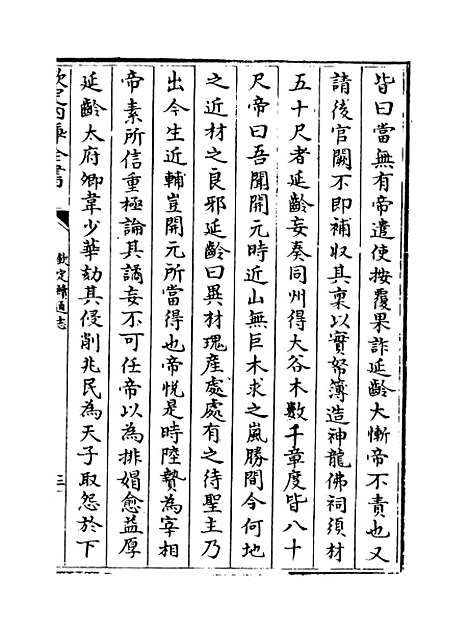 皆曰當無有帝遣使按覆果詐延齡大慚帝不責也又
請後官闕不即補收其稟以實帑簿造神龍佛祠須材
五十尺者延齡妄奏同州得大谷木數千章度皆八十
尺帝曰吾聞開元時近山無巨木求之嵐勝間今何地
之近材之良邪延齡曰異材瑰産處處有之待聖主乃
出今生近輔豈開元所當得也帝悦是時陸贄為宰相
帝素所信重極論其譎妄不可任帝以為排媢愈益厚
延齡太府卿韋少華劾其侵削兆民為天子取怨於下
欽定四庫全書
欽定續通志